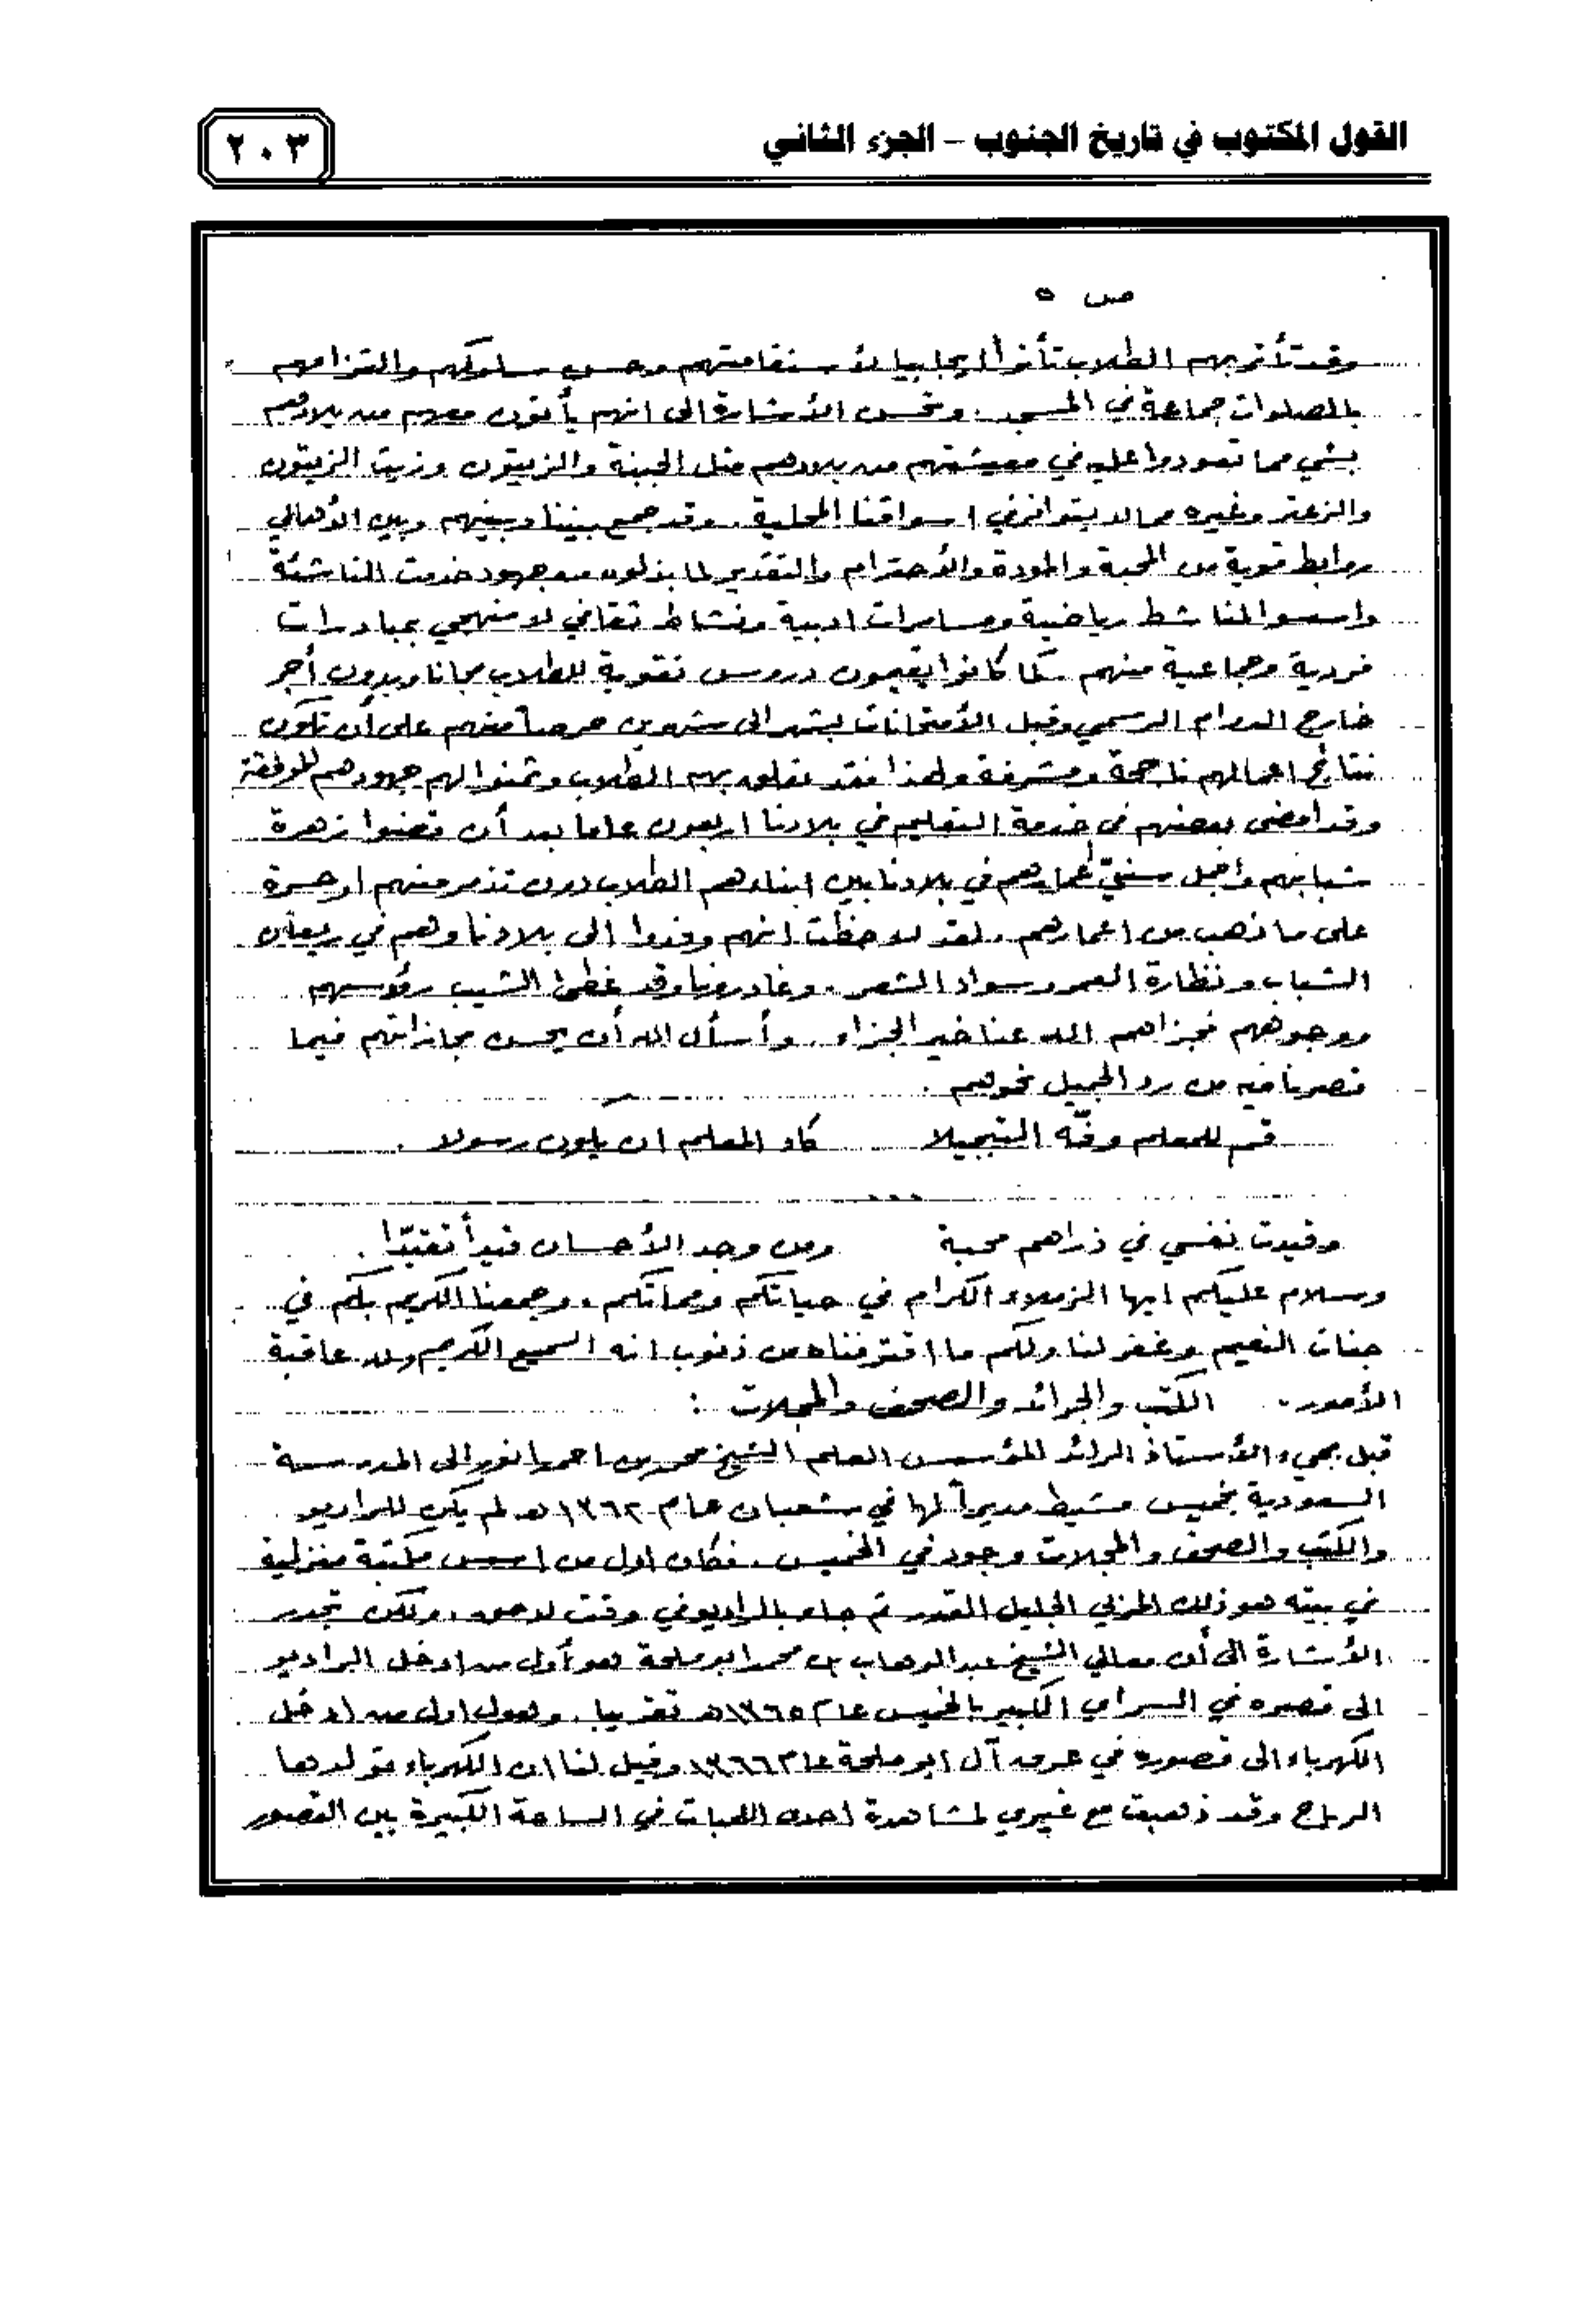 القول المكتوب في تاريخ الجنوب – الجزء الثاني
٢٠٣
ص ٥
وقد تأثر بهم الطلاب تأثراً ايجابيا لأستقامتهم وحسن سلوكهم والتزامهم
بالصلوات جماعة في المسجد. وتحسن الأشارة الى انهم يأتون معهم من بلادهم
بشي مما تعودوا عليه في معيشتهم من بلادهم مثل الجبنة والزيتون وزيت الزيتون
والزعتر وغيره مما لا يتوافر في اسواقنا المحلية. وقد جمع بيننا وبينهم وبين الأهالي
روابط قوية من المحبة والمودة والأحترام والتقدير لما بذلوه من جهود خدمت الناشئة
واسسوا المناشط رياضية ومسامرات ادبية ونشاط ثقافي لا منهجي بمبادرات
فردية وجماعية منهم كما كانوا يقيمون دروس تقوية للطلاب مجانا وبدون أجر
خارج الدوام الرسمي وقبل الأمتحانات بشهر الى شهرين حرصاً منهم على أن تكون
نتائج اعمالهم ناجحة ومشرفة ولهذا فقد تعلق بهم الطلاب وثمنوا لهم جهودهم الموفقة
وقد امضى بعضهم في خدمة التعليم في بلادنا اربعون عاما بعد أن قضوا زهرة
شبابهم واجمل سنيّ أعمارهم في بلادنا بين ابناءهم الطلاب دون تذمر منهم او حسرة
على ما ذهب من اعمارهم. لقد لاحظت انهم وفدوا الى بلادنا وهم في ريعان
الشباب ونظارة العمر وسواد الشعر. وغادرونا وقد غطى الشيب رؤوسهم
ووجوههم فجزاهم الله عنا خير الجزاء. وأسأل الله أن يحسن مجازاتهم فيما
قصرنا فيه من رد الجميل نحوهم.
قم للمعلم وفّه التبجيلا كاد المعلم ان يكون رسولا.
وقيدت نفسي في ذراهم محبة ومن وجد الأحسان قيداً تقيّدا.
وسلام عليكم ايها الزملاء الكرام في حياتكم ومماتكم. وجمعنا الكريم بكم في
جنات النعيم وغفر لنا ولكم ما اقترفناه من ذنوب انه السميع الكريم وله عاقبة
الأمور. الكتب والجرائد والصحف والمجلات :
قبل مجيء الأستاذ الرائد المؤسس العلم الشيخ محمد بن احمد انور الى المدرسة
السعودية بخميس مشيط مديراً لها في شعبان عام ١٣٦٢هـ لم يكن للراديو
والكتب والصحف والمجلات وجود في الخميس. فكان اول من اسس مكتبة منزلية
في بيته هو ذلك المربي الجليل القدير ثم جاء بالراديو في وقت لاحق. ولكن تجدر
الأشارة الى أن معالي الشيخ عبدالوهاب بن محمد ابو ملحة هو أول من ادخل الراديو
الى قصره في السراي الكبير بالخميس عام ١٣٦٥هـ تقريبا. وهو اول من ادخل
الكهرباء الى قصوره في عرق آل ابو ملحة عام ١٣٦٦ وقيل لنا ان الكهرباء تولدها
الرياح وقد ذهبت مع غيري لمشاهدة احدى اللمبات في الساحة الكبيرة بين القصور